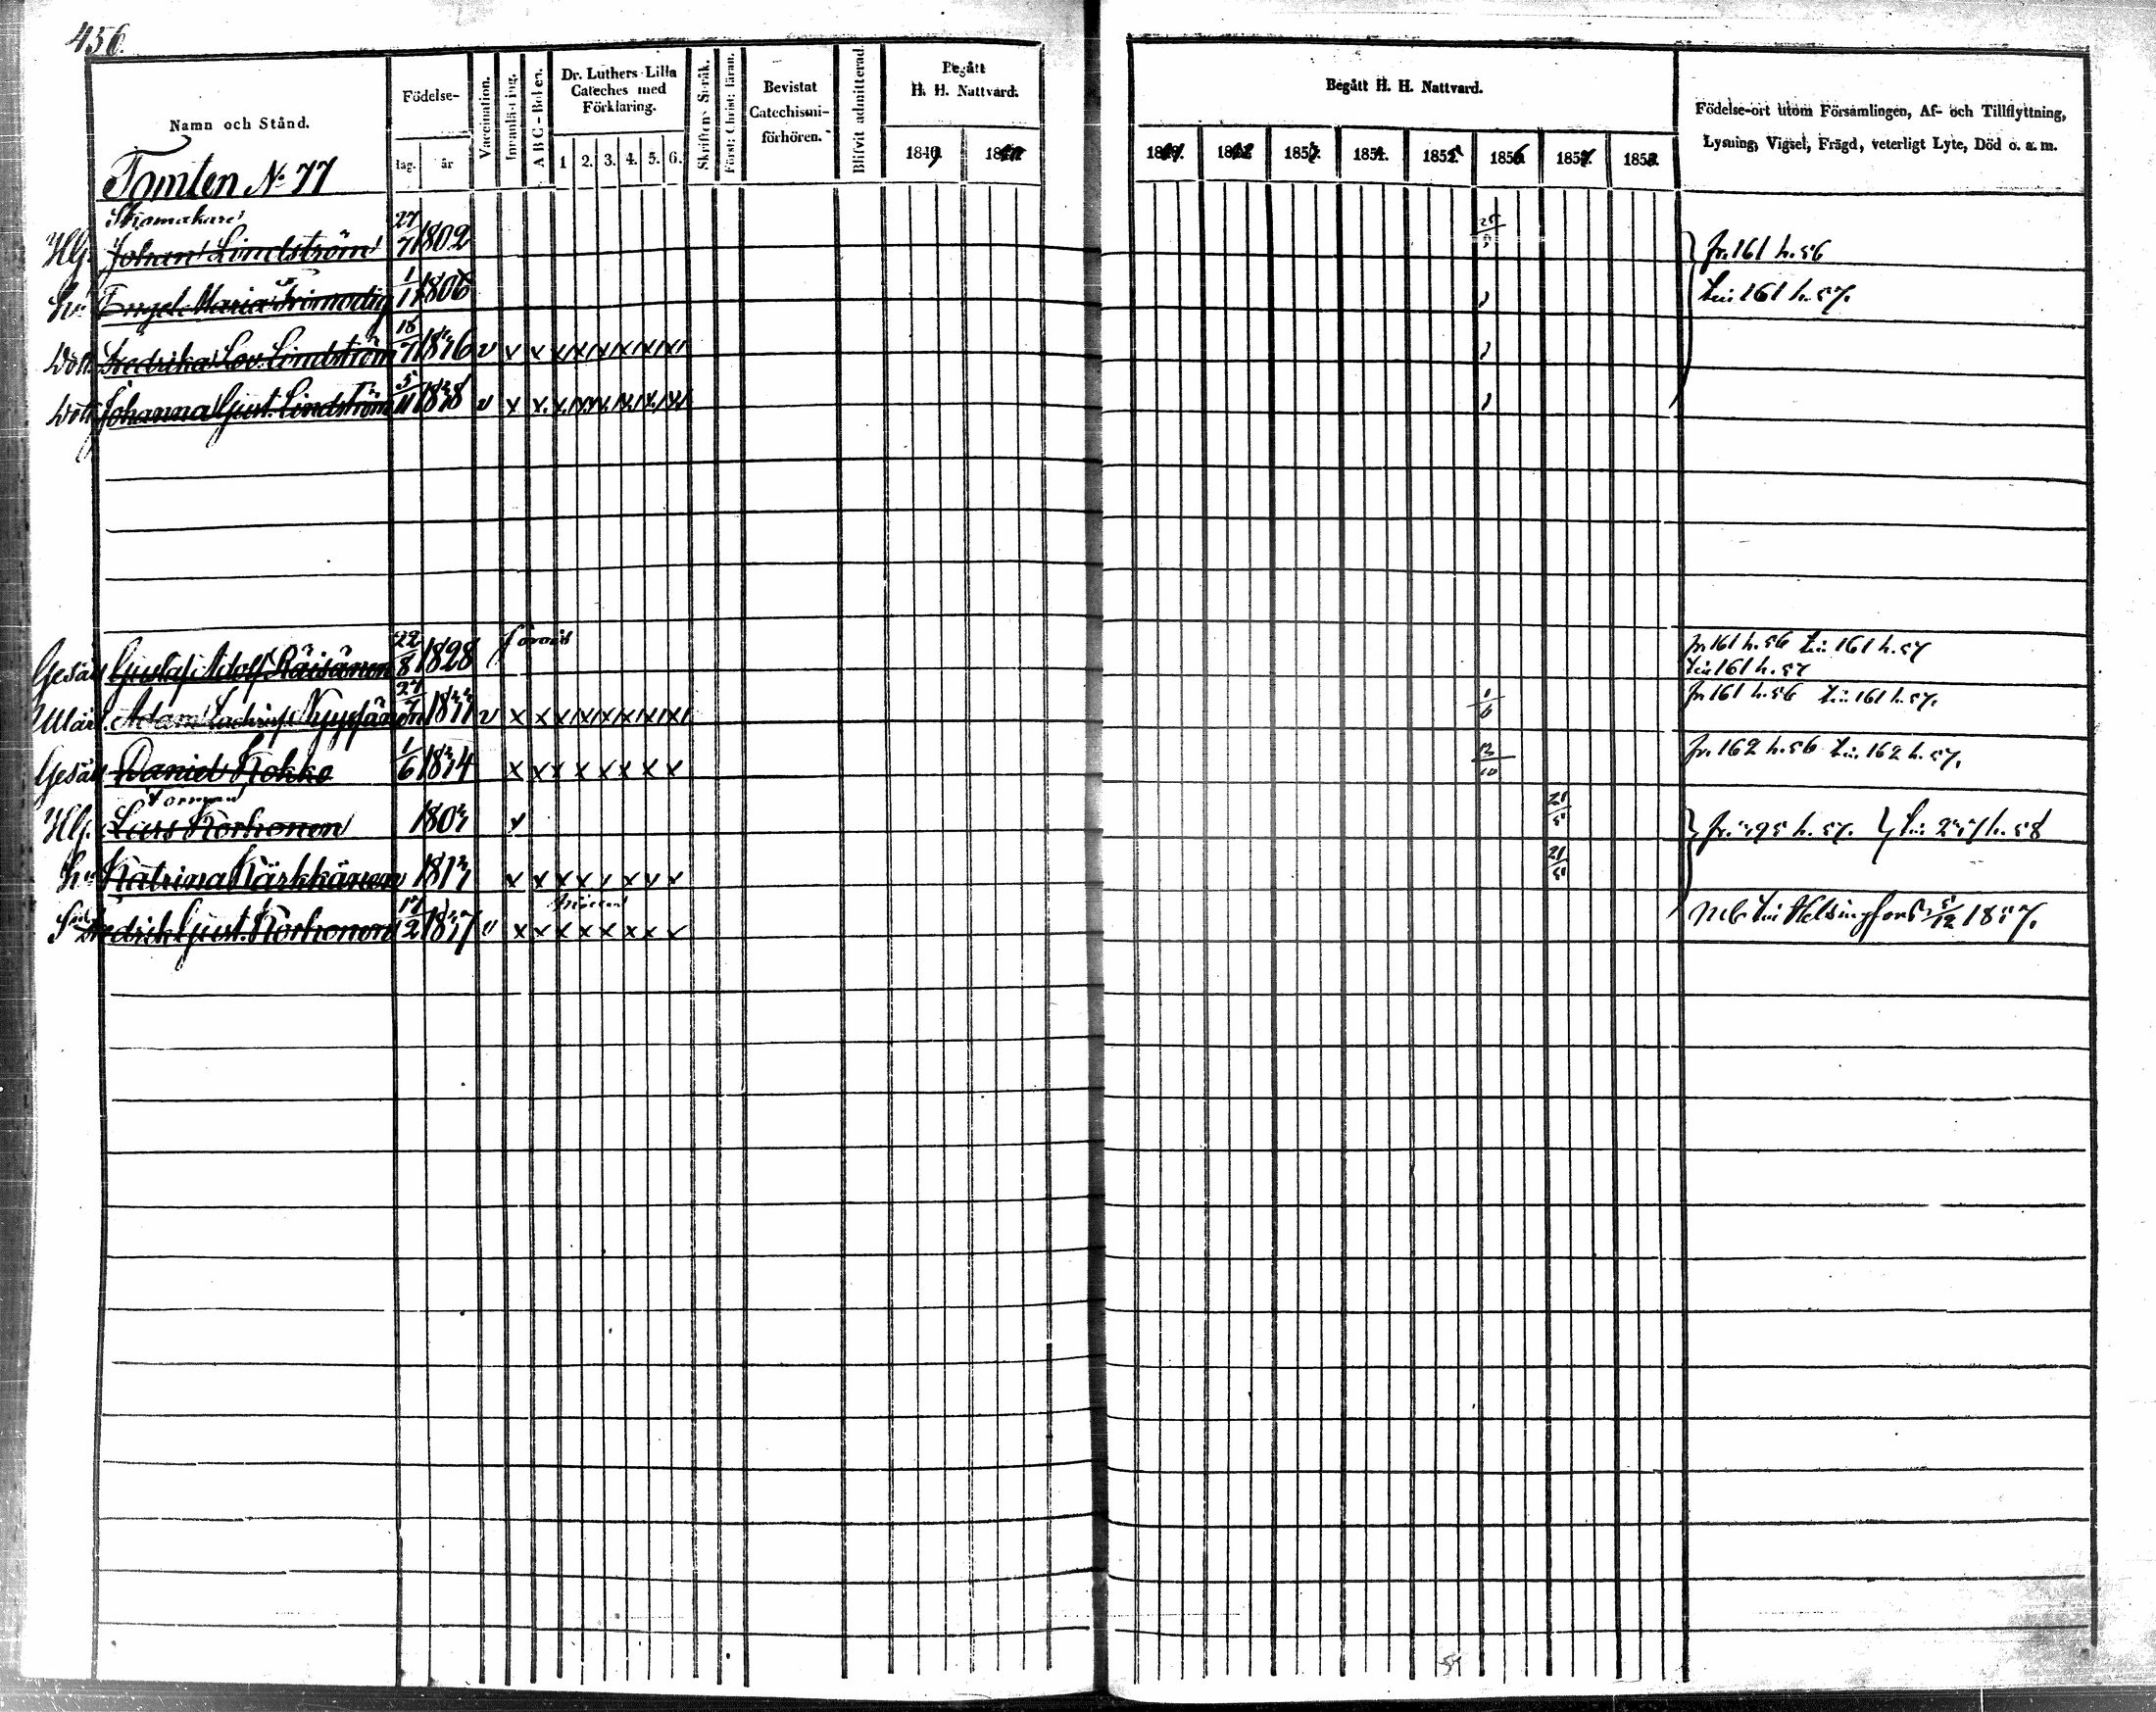 456
Namn och Stånd.
Födelse-
dag. år
Vaccination.
Innanläsning.
A B C-Boken.
Dr. Luthers Lilla Cateches med Förklaring.
1 2. 3. 4. 5. 6.
Skriftens Språk.
Först: Christ: läran.
Bevistat Catechismi-förhören.
Blifvit admitterad.
Begått H. H. Nattvard.
Begått H. H. Nattvard.
1853. 1854. 1855 1856 1857. 1858.
Födelse-ort utom Församlingen, Af- och Tillflyttning,
Lysning, Vigsel, Frägd, veterligt Lyte, Död o. a. m.
Tomten No 77
Skomakare
Hlg. Johan Lindström 27/7 1802 fr. 161 h. 56
Hu Engel Maria 1/11 1806 till 161 h. 57.
Dott. Fredrika Lov. Lindström 16/7 1836 v x x x x x x x x
Dott Johanna Gust. Lindström 5/11 1838 v x x x x x x x x
Gesäll Gustaf Adolf Räisänen 22/8 1828 fr 161 h. 56 till 161 h. 57
till 161 h. 57
Adam 27/7 1833 v x x x x x x x x 1/6 fr 161 h. 56 till 161 h. 57.
Gesäll Daniel Kokko 1/6 1834 x x x x x x x x 12/10 fr. 162 h. 56 till 162 h. 57.
Forman
Hlg. Lars Korhonen 1803 x 21/5 h. 57. h. 58
Hu Katrina Kärkkänen 1813 x x x x x x x x 21/5
Son Fredrik Gust. Korhonen 17/12 1837 v x x x x x x x x mb till Helsingfors 5/12 1857.